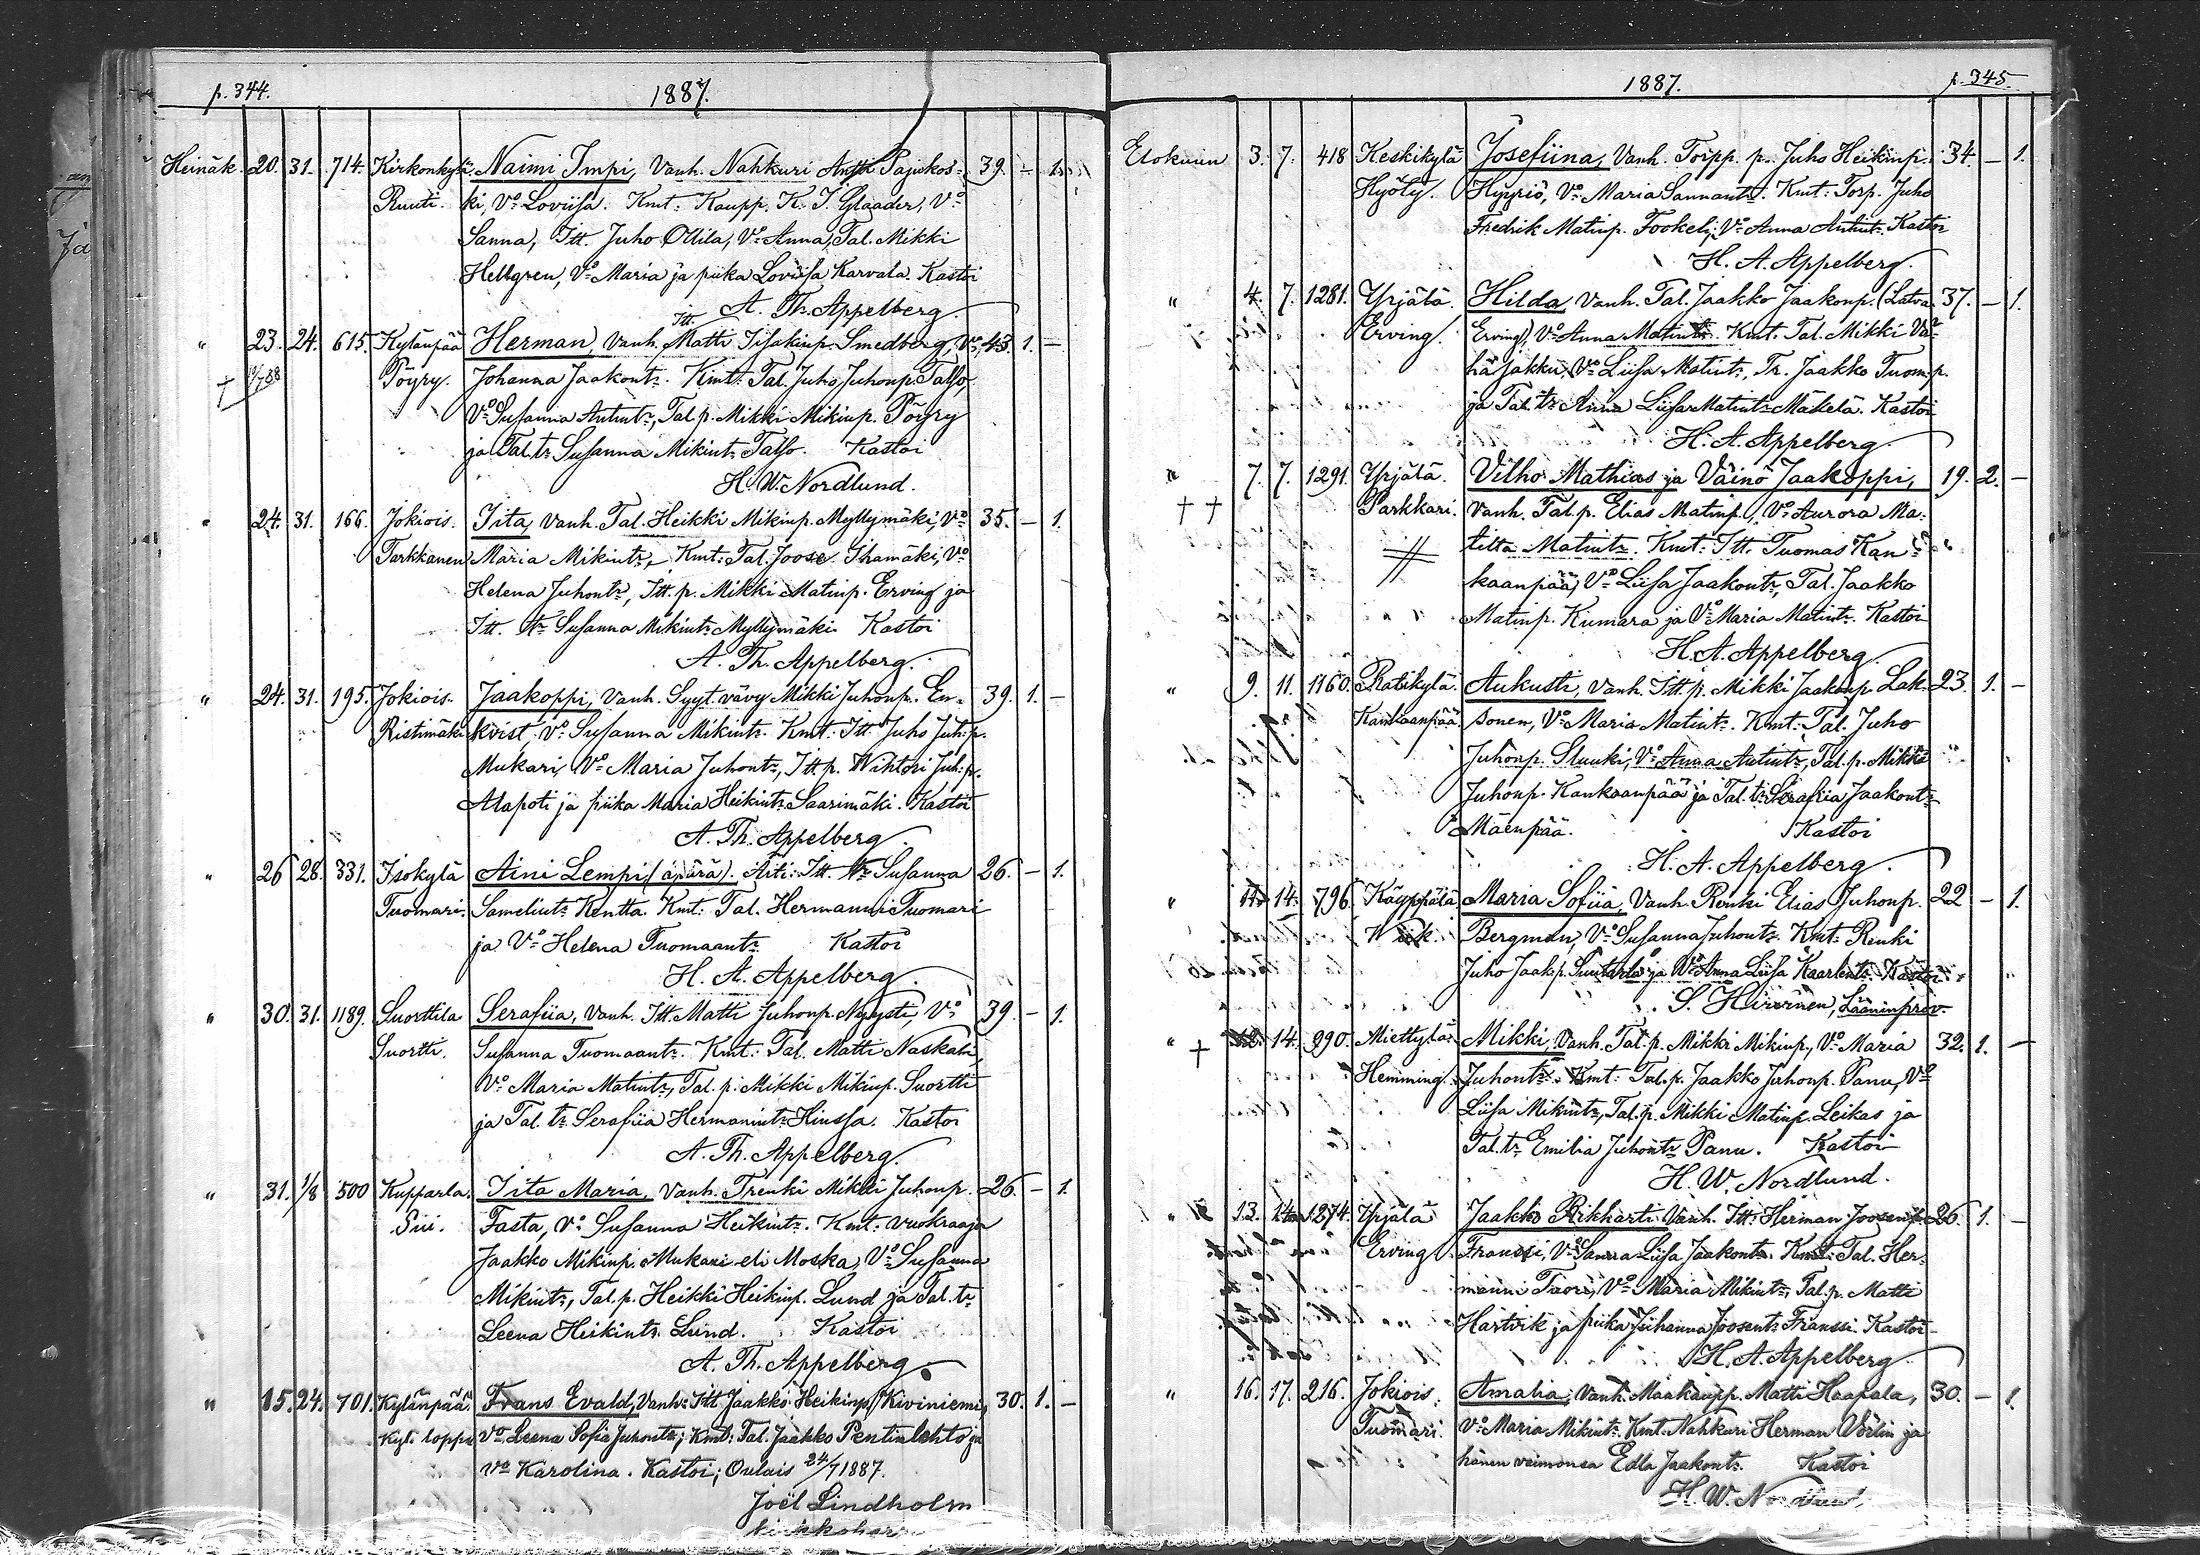 p. 344.
1887.
Heinäk. 20. 31. 714. Kirkonkylä Naimi Impi, Vanh. Nahkuri Antti Pajukos- 39. - 1.
Ruuti. ki, Vo Loviisa. Kmt: Kaupp. K. J. Glaader, Vo
Sanna, Itt. Juho Ollila, Vo Anna, Tal. Mikki
Hellgren, Vo Maria ja piika Loviisa Karvala. Kastoi
A. Th. Appelberg.
" 23. 24. 615. Kylänpää Herman, Vanh. Itt. Matti Iisakinp. Smedberg, Vo 43. 1. -
† Pöyry. Johanna Jaakontr. Kmt: Tal. Juho Juhonp. Talso,
Vo Susanna Antintr, Tal. p. Mikki Mikinp. Pöyry
ja Tal. tr Susanna Mikintr Talso. Kastoi
H. W. Nordlund.
" 24. 31. 166. Jokiois. Iita, Vanh. Tal. Heikki Mikinp. Myllymäki, Vo 35. - 1.
Tarkkanen Maria Mikintr, Kmt: Tal. Joose Ihamäki, Vo
Helena Juhontr, Itt. p. Mikki Matinp. Erving ja
Itt. tr Susanna Mikintr Myllymäki. Kastoi
A. Th. Appelberg.
" 24. 31. 195. Jokiois. Jaakoppi, Vanh. Syyt. vävy Mikki Juhonp. En- 39. 1. -
Ristimäki kvist, Vo Susanna Mikintr. Kmt: Itt. Juho Juh:p.
Mukari, Vo Maria Juhontr, Itt. p. Wihtori Juh:p.
Alapoti ja piika Maria Heikintr Saarimäki. Kastoi
A. Th. Appelberg.
" 26 28. 331. Isokylä Aini Lempi (äpärä). Äiti: Itt. tr Susanna 26. - 1.
Tuomari. Samelintr Kentta. Kmt: Tal. Hermanni Tuomari
ja Vo Helena Tuomaantr Kastoi
H. A. Appelberg.
" 30. 31. 1189. Suorttila Serafiia, Vanh. Itt. Matti Juhonp. Nyysti, Vo 39. - 1.
Suortti. Susanna Tuomaantr. Kmt: Tal. Matti Naskali,
Vo Maria Matintr, Tal. p. Mikki Mikinp. Suortti
ja Tal. tr Serafiia Hermanintr Hinssa. Kastoi
A. Th. Appelberg.
" 31. 1/8 500 Kupparla. Iita Maria, Vanh. Trenki Mikki Juhonp. 26. - 1.
Pii. Fasta, Vo Susanna Heikintr. Kmt: Vuokraaja
Jaakko Mikinp. Mukari eli Moska, Vo Susanna
Mikintr, Tal. p. Heikki Heikinp. Lund ja Tal. tr
Leena Heikintr Lund. Kastoi
A. Th. Appelberg.
" 15. 24. 701. Kylänpää Frans Evald, Vanh: Itt Jaakko Heikinp. Kiviniemi, 30. 1. -
Kyl. loppu Vo Leena Sofia Juhontr; Kmt: Tal. Jaakko Pentinlehto ja
Vo Karolina. Kastoi; Oulais 24/7 1887.
Joël Lindholm
kirkkoher.
1887.
p. 345.
Elokuun 3. 7. 418 Keskikylä Josefiina, Vanh. Torpp. p. Juho Heikinp. 34. - 1.
Hyöty. Hyyriö, Vo Maria Sannantr. Kmt: Torp. Juho
Fredrik Matinp. Fookeli, Vo Anna Antintr. Kastoi
H. A. Appelberg.
" 4. 7. 1281. Yrjälä. Hilda, Vanh. Tal. Jaakko Jaakonp. (Latva 37. - 1.
Erving. Erving), Vo Anna Matintr. Kmt. Tal. Mikki Vä-
häjakku, Vo Liisa Matintr, Tr. Jaakko Tuom:p.
ja Tal. tr Anna Liisa Matintr Mäkelä. Kastoi
H. A. Appelberg.
" 7. 7. 1291. Yrjälä. Vilho Mathias ja Väinö Jaakoppi, 19. 2. -
† † Parkkari. Vanh. Tal. p. Elias Matinp., Vo Aurora Ma-
tilta Matintr. Kmt: Itt. Tuomas Kan-
kaanpää, Vo Liisa Jaakontr, Tal. Jaakko
Matinp. Kumara ja Vo Maria Matintr. Kastoi
H. A. Appelberg.
" 9. 11. 1160. Ratikylä. Aukusti, Vanh. Itt. p. Mikki Jaakonp. Lak- 23. 1. -
Kankaanpää sonen, Vo Maria Matintr. Kmt: Tal. Juho
Juhonp. Sluuki, Vo Anna Antintr, Tal. p. Mikki
Juhonp. Kankaanpää ja Tal. tr Serafiia Jaakontr
Mäenpää. Kastoi
H. A. Appelberg.
" 11. 14. 796. Käyppälä Maria Sofiia, Vanh. Renki Elias Juhonp. 22 - 1.
Wiik. Bergman, Vo Susanna Juhontr. Kmt: Renki
Juho Jaak:p. ja Vo Anna Liisa Kaarlentr. Kastoi
S. Hirvinen, Lääninprov.
" † 12. 14. 990. Miettylä Mikki, Vanh. Tal. p. Mikki Mikinp., Vo Maria 32. 1. -
Hemming. Juhontr. Kmt: Tal. p. Jaakko Juhonp. Panu, Vo
Liisa Mikintr, Tal. p. Mikki Matinp. Leikas ja
Tal. tr Emilia Juhontr Panu. Kastoi
H. W. Nordlund.
" 13. 14. 1274. Yrjälä Jaakko Rikkarti, Vanh. Itt. Herman Joosenp. 26. 1. -
Erving. Franssi, Vo Sanna Liisa Jaakontr. Kmt: Tal. Her-
manni Tuori, Vo Maria Mikintr, Tal. p. Matti
Hartvik ja piika Juhanna Joosentr Franssi. Kastoi
H. A. Appelberg.
" 16. 17. 216. Jokiois. Amalia, Vanh. Maakaupp. Matti Haapala, 30. - 1.
Tuomari. Vo Maria Mikintr. Kmt. Nahkuri Herman Vörlin ja
hänen vaimonsa Edla Jaakontr. Kastoi
H. W. Nordlund.